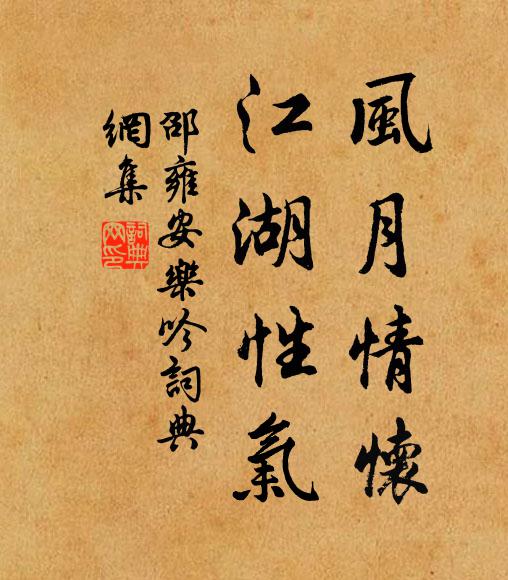 風月情懷
江湖性氣
邵雍安樂吟詞典
網集
詞典
網印